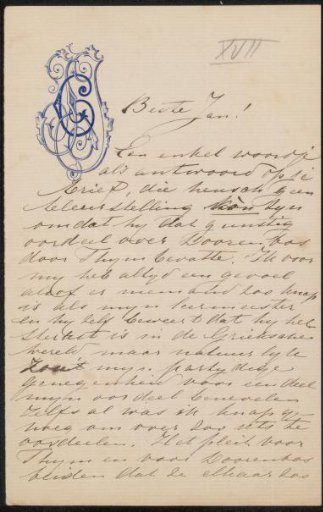 XVII
Beste Jan!
Een enkel woordje
als antwoord op je
brief, die heusch geen
teleurstelling kon zyn
omdat hy dat gunstig
oordeel over Doorenbos
door Thym bevatte. Ik voor
my heb altyd een gevoel
alsof er niemand zoo knap
is als myn leermeester
en hy zelf beweert dat hy het
sterkst is in de Grieksche
wereld, maar natuurlyk
zou myn partydige
genegenheid voor een deel
myn oordeel benevelen
zelfs al was ik knap ge-
noeg om over zoo iets te
oordeelen. Het pleit voor
Thym en voor Doorenbos
beiden dat ze elkaar zoo